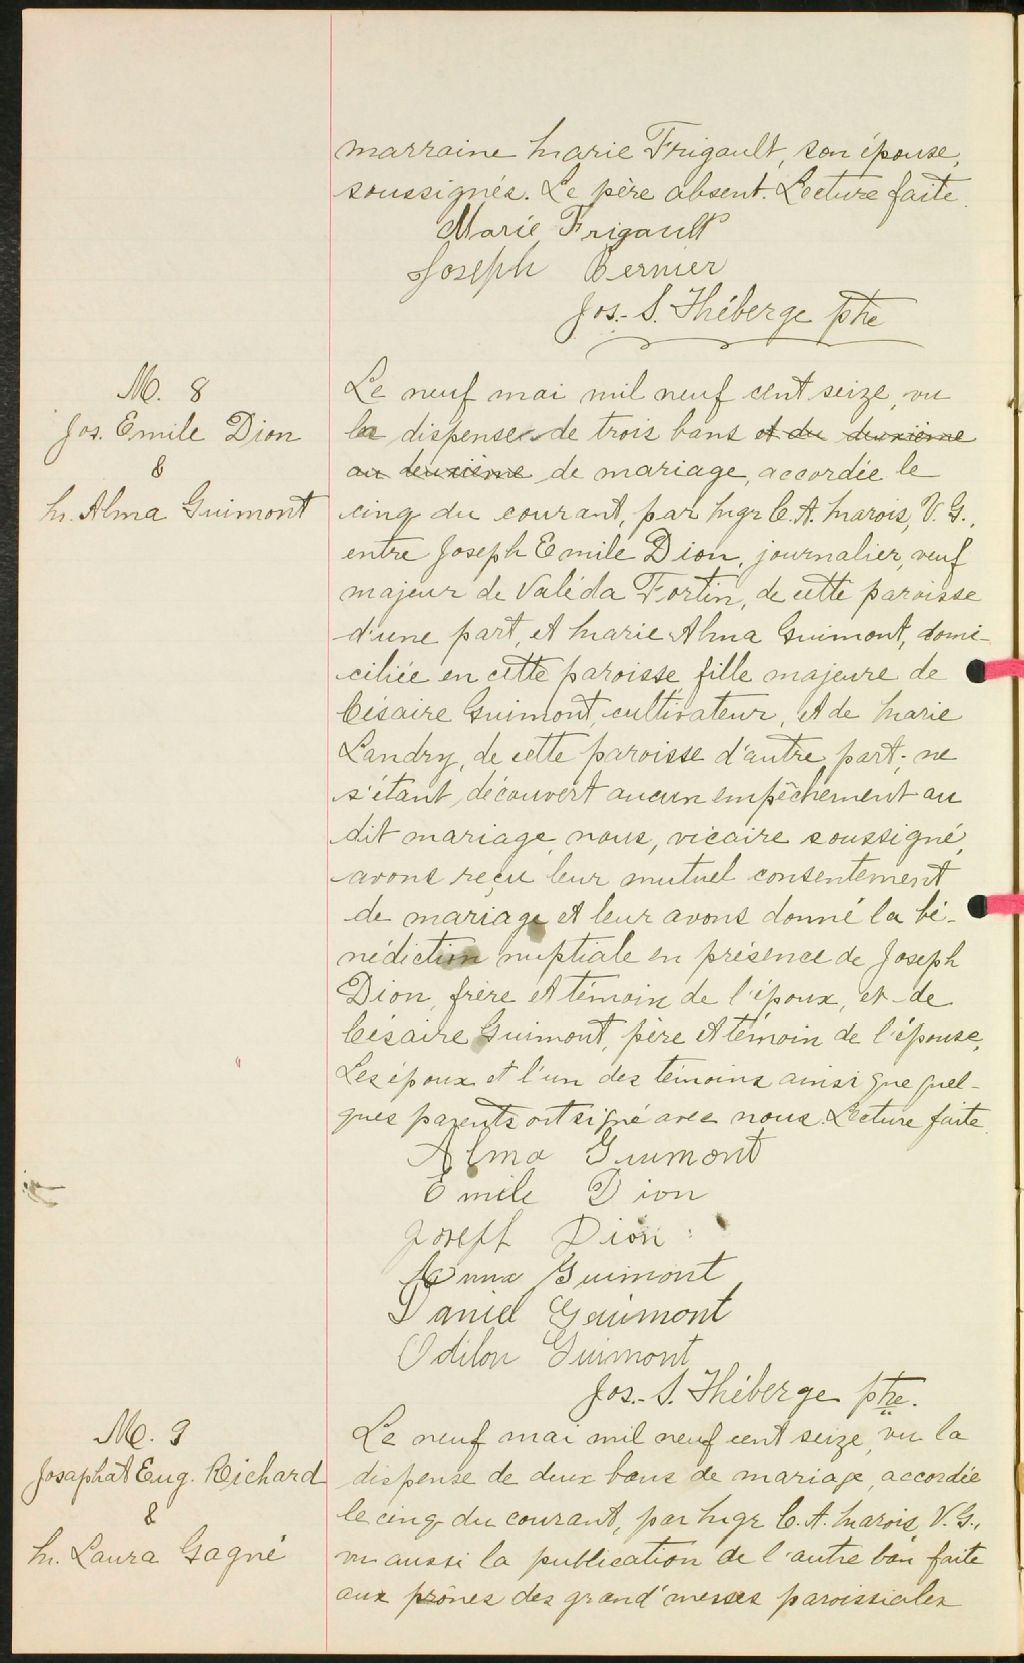 marraine Marie Frigault, son épouse,
soussignés. Le père absent. Lecture faite.
Marie Frigault
Joseph Bernier
Jos.-S. Théberge ptre
M. 8
Jos. Emile Dion
&
M. Alma Guimont
Le neuf mai mil neuf cent seize, vu
la dispense de trois bans et du deuxième
au deuxième de mariage, accordée le
cinq du courant, par Mgr C. A. Marois, V. G.,
entre Joseph Emile Dion, journalier, veuf
majeur de Valéda Fortin, de cette paroisse
d'une part, et Marie Alma Guimont, domi-
ciliée en cette paroisse fille majeure de
Césaire Guimont, cultivateur, et de Marie
Landry, de cette paroisse d'autre part; ne
s'étant découvert aucun empêchement au
dit mariage, nous, vicaire soussigné,
avons reçu leur mutuel consentement
de mariage et leur avons donné la bé-
nédiction nuptiale en présence de Joseph
Dion, frère et témoin de l'époux, et de
Césaire Guimont, père et témoin de l'épouse,
Les époux et l'un des témoins ainsi que quel-
ques parents ont signé avec nous. Lecture faite.
Alma Guimont
Emile Dion
Joseph Dion
Anna Guimont
Daniel Guimont
Odilon Guimont
Jos.-S. Théberge ptre.
M. 9
Josaphat Eug. Richard
&
M. Laura Gagné
Le neuf mai mil neuf cent seize, vu la
dispense de deux bans de mariage, accordée
le cinq du courant, par Mgr C. A. Marois, V. G.,
vu aussi la publication de l'autre ban faite
aux prônes des grand'messes paroissiales